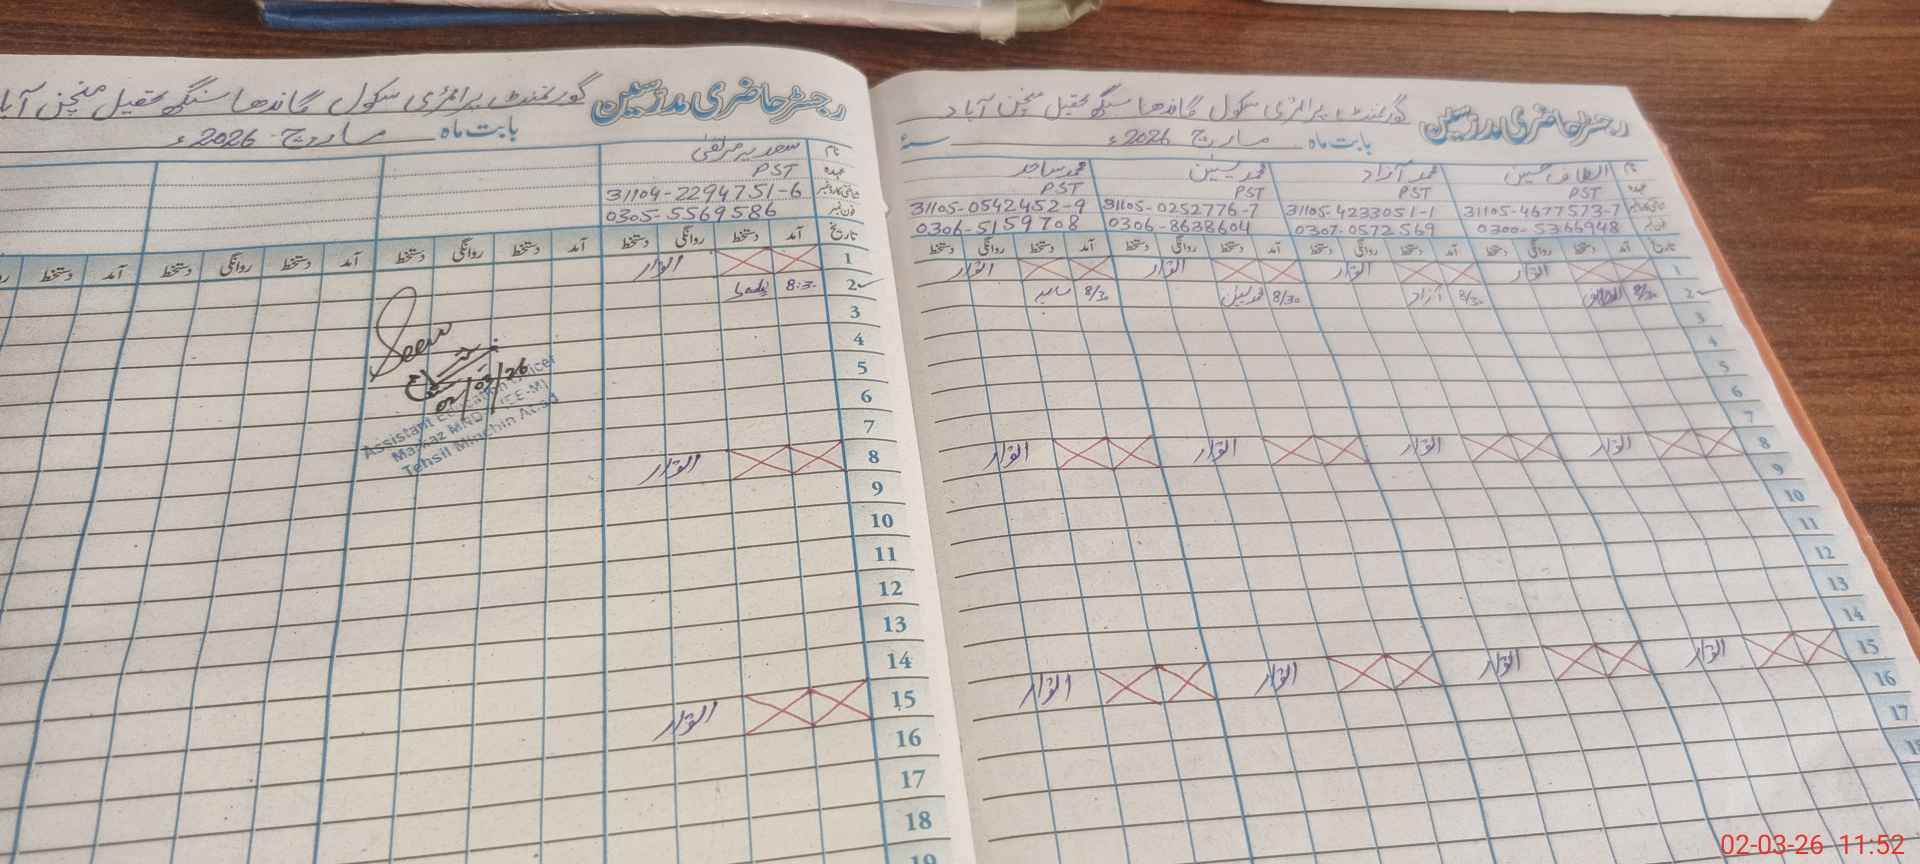 رجسٹر حاضری مدرسین گورنمنٹ پرائمری سکول گاندھا سنگھ تحصیل منچن آباد
بابت ماہ مارچ 2026ء سنۂ
نام الطاف حسین محمد آزاد محمد یٰسین محمد ساجد
عہدہ PST PST PST PST
31105-4677573-7 31105-4233051-1 31105-0252776-7 31105-0542452-9
0300-5366948 0307-0572569 0306-8638604 0306-5159708
تاریخ آمد دستخط روانگی دستخط آمد دستخط روانگی دستخط آمد دستخط روانگی دستخط آمد دستخط روانگی دستخط
1 اتوار اتوار اتوار اتوار
2 8/30 الطاف 8/30 آزاد 8/30 محمد یٰسین 8/30 ساجد
3
4
5
6
7
8 اتوار اتوار اتوار اتوار
9
10
11
12
13
14
15 اتوار اتوار اتوار اتوار
16
17
رجسٹر حاضری مدرسین گورنمنٹ پرائمری سکول گاندھا سنگھ تحصیل منچن آبا
بابت ماہ مارچ 2026ء
نام سعدیہ مرتضیٰ
عہدہ PST
شناختی کارڈ نمبر 31104-2294751-6
فون نمبر 0305-5569586
تاریخ آمد دستخط روانگی دستخط آمد دستخط روانگی دستخط آمد دستخط روانگی دستخط آمد دستخط
1 اتوار
2 8:30
3
4
5
6
7
8 اتوار
9
10
11
12
13
14
15 اتوار
16
17
18
19
Seen
02/03/26
Assistant Education Officer
Markaz MND (EE-M)
Tehsil Minchin Abad
02-03-26 11:52